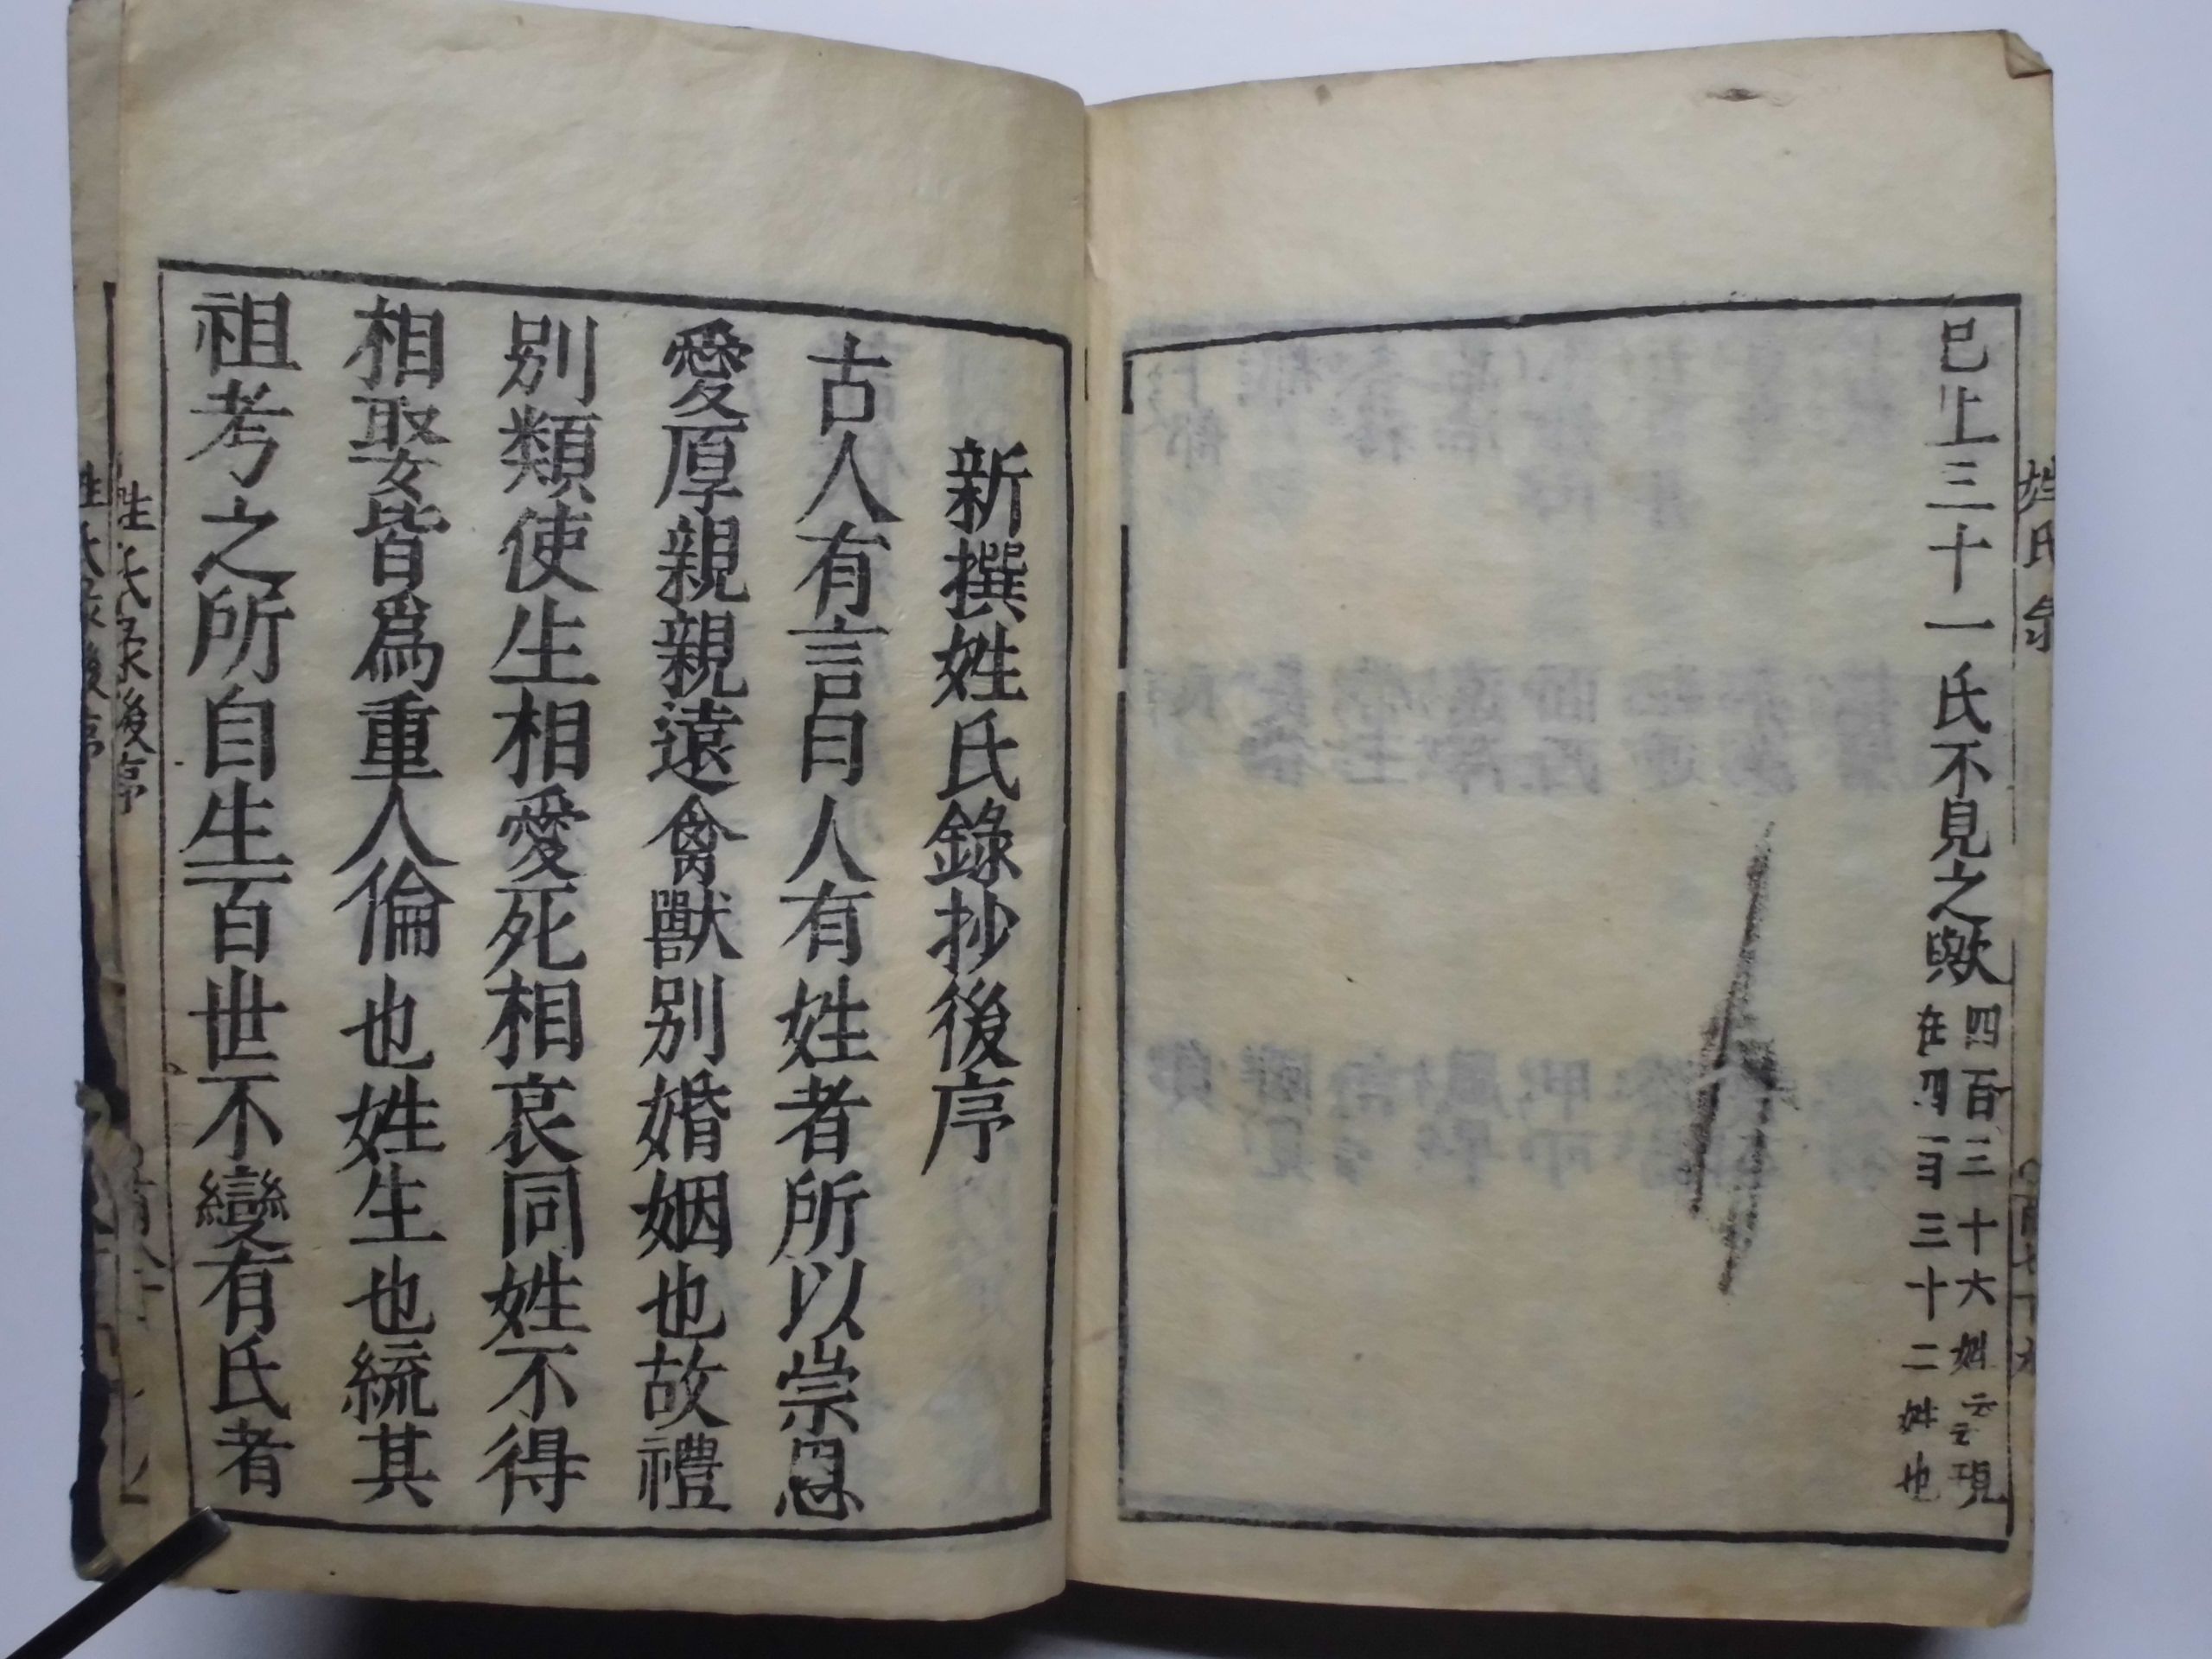 已上三十一氏不見之歟
四百三十六姓云云現
在四百三十二姓也
新撰姓氏錄抄後序
古人有言曰人有姓者所以崇恩
愛厚親親遠禽獸別婚姻也故禮
別類使生相愛死相哀同姓不得
相娶皆爲重人倫也姓生也統其
祖考之所自生百世不變有氏者
姓氏彔後序